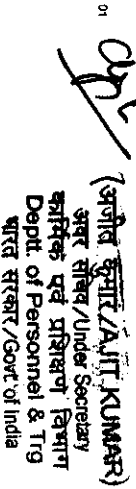 01
(अजीत कुमार/AJIT KUMAR)
अवर सचिव/Under Secretary
कार्मिक एवं प्रशिक्षण विभाग
Deptt. of Personnel & Trg
भारत सरकार/Govt of India